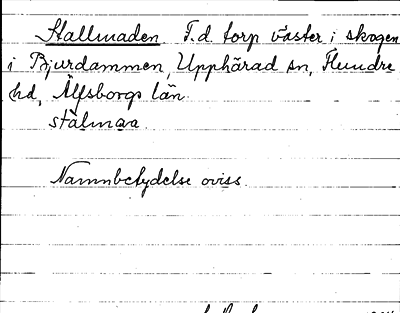 Stallmaden T.d. torp väster i skogen
i Bjurdammen, Upphärad sn, Flundre
hd, Älfsborgs län
stålmaa
Namnbetydelse oviss